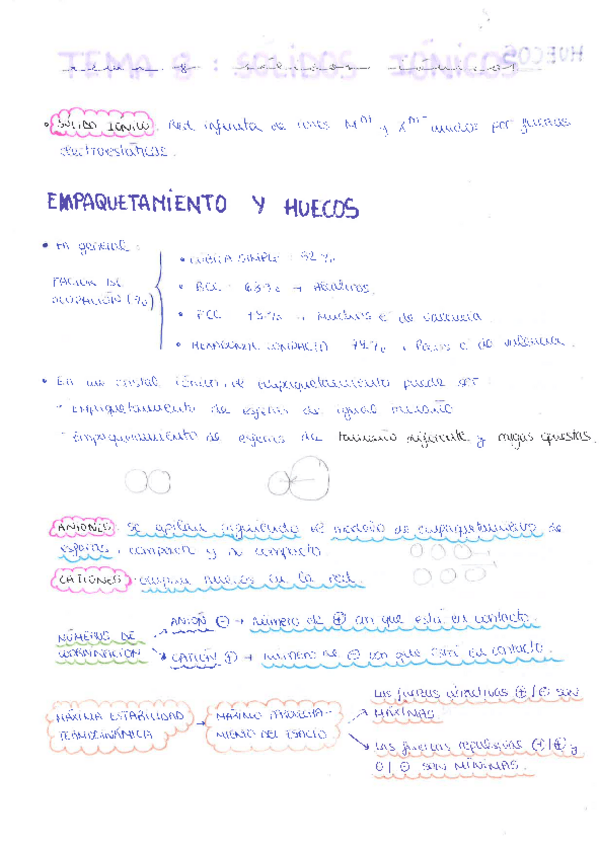 HUECOS
TEMA 8: SÓLIDOS IÓNICOS
• SÓLIDO IÓNICO: Red infinita de iones Mⁿ⁺ y Xᵐ⁻ unidos por fuerzas
electroestáticas.
EMPAQUETAMIENTO Y HUECOS
• En general:
FACTOR DE
OCUPACIÓN (%)
• CÚBICA SIMPLE: 52%
• BCC: 68% → Alcalinos.
• FCC:
• HEXAGONAL 74%, Pocos e⁻ de valencia.
• En un cristal iónico, el empaquetamiento puede ser:
- Empaquetamiento de esferas de igual tamaño
- Empaquetamiento de esferas de tamaño diferente y cargas opuestas.
ANIONES: se apilan siguiendo el modelo de empaquetamiento de
esferas, compacto y no compacto.
CATIONES: ocupan huecos en la red.
NÚMEROS DE
COORDINACIÓN
ANIÓN ⊖ → número de ⊕ con que está en contacto.
CATIÓN ⊕ → número de ⊖ con que está en contacto.
MÁXIMA ESTABILIDAD
TERMODINÁMICA
→ MÁXIMO APROVECHA-
MIENTO DEL ESPACIO
Las fuerzas atractivas ⊕/⊖ SON
MÁXIMAS
Las fuerzas repulsivas ⊕/⊕ y
⊖/⊖ SON MÍNIMAS.